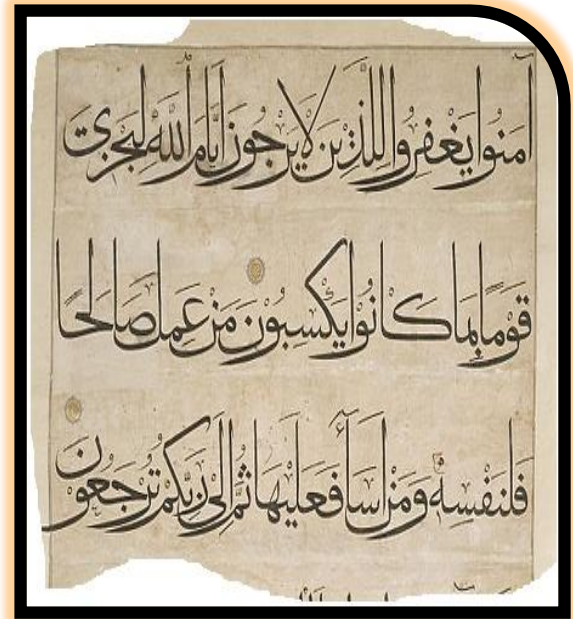 آمَنُوا يَغْفِرُوا لِلَّذِينَ لَا يَرْجُونَ أَيَّامَ اللَّهِ لِيَجْزِيَ
قَوْمًا بِمَا كَانُوا يَكْسِبُونَ مَنْ عَمِلَ صَالِحًا
فَلِنَفْسِهِ وَمَنْ أَسَاءَ فَعَلَيْهَا ثُمَّ إِلَى رَبِّكُمْ تُرْجَعُونَ